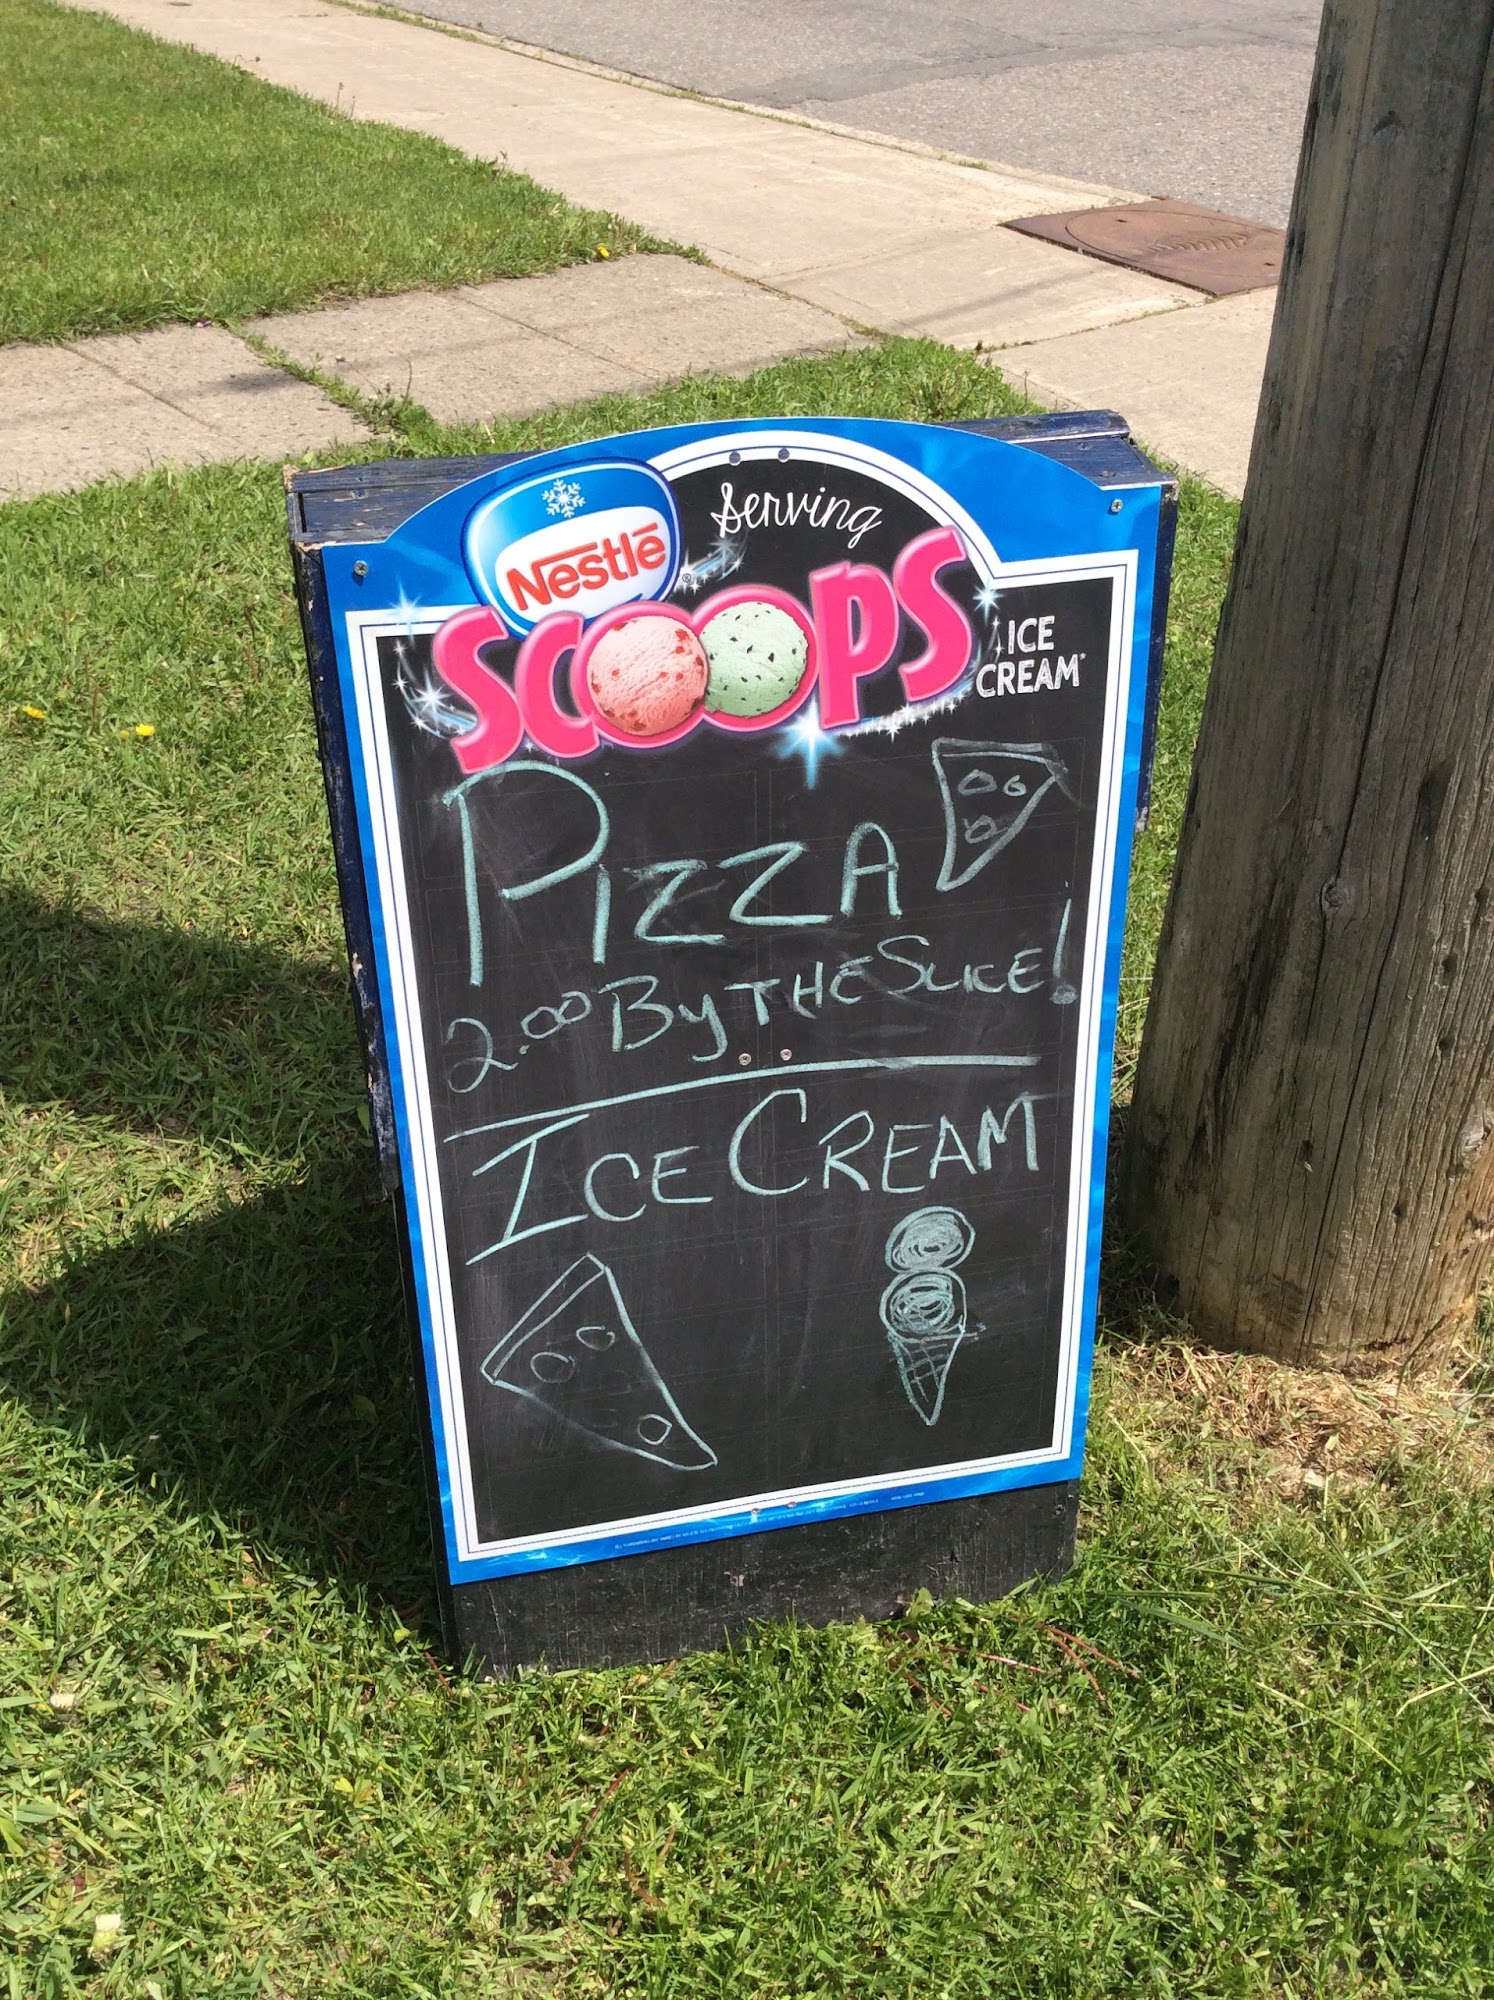 Serving
Nestlé®
SCOOPS
ICE
CREAM
PIZZA
2.00 By THE SLICE!
ICE CREAM